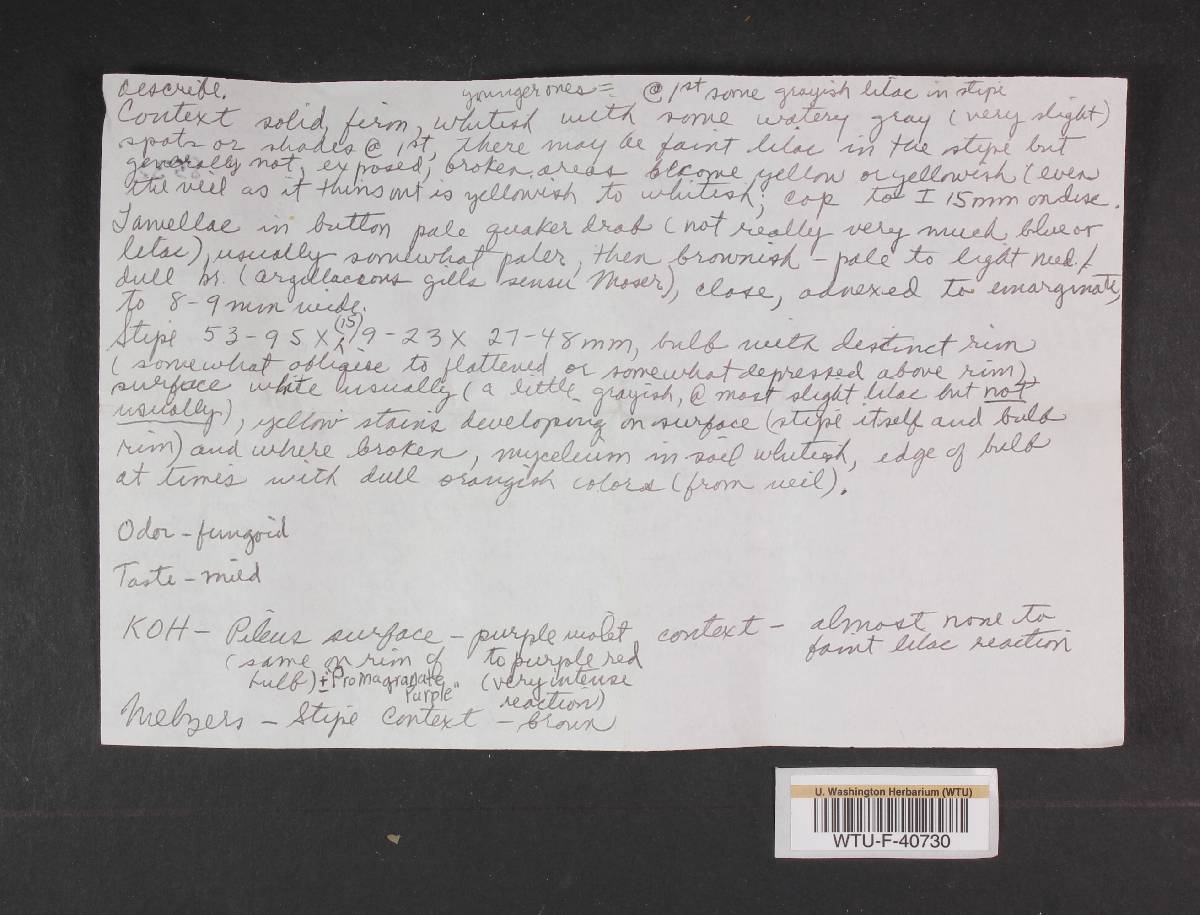 describe.
youngerones = @ 1st some grayish lilac in stipe
Context solid, firm, whitish with some watery gray (very slight)
spots or shades @ 1st, there may be faint lilac in the stipe but
generally not, exposed, broken areas become yellow or yellowish (even
the veil as it thins out is yellowish to whitish; cap to I 15mm on disc.
Lamellae in button pale quaker drab (not really very much blue or
lilac), usually somewhat paler, then brownish - pale to light med./
dull br. (argillaceous gills sensu Moser), close, adnexed to emarginate,
to 8-9 mm wide.
Stipe 53-95 X (15) 19-23 X 27-48mm, bulb with distinct rim
(somewhat oblique to flattened or somewhat depressed above rim)
surface white usually (a little grayish, @ most slight lilac but not
usually), yellow stains developing on surface (stipe itself and bulb
rim) and where broken, mycelium in soil whitish, edge of bulb
at times with dull orangish colors (from veil).
Odor - fungoid
Taste - mild
KOH - Pileus surface - purple violet, context - almost none to
(same on rim of to purple red faint lilac reaction
bulb) ± "Promagranate (very intense
Purple" reaction)
Melzers - Stipe Context - brown
U. Washington Herbarium (WTU)
WTU-F-40730